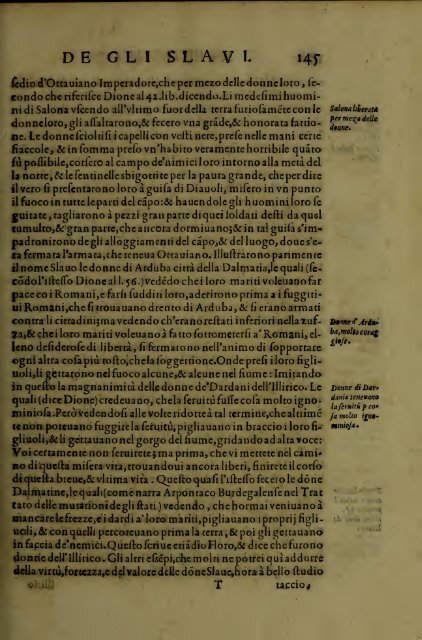 DE GLI SLAVI. 145
sedio d'Ottauiano Imperadore, che per mezo delle donne loro, se-
condo che riferisce Dione al 42. lib. dicendo. Li medesimi huomi-
ni di Salona vscendo all'vltimo fuor della terra furiosamēte con le
donne loro, gli assaltarono, & fecero vna grāde, & honorata fattio-
ne. Le donne sciolsi i capelli con vesti nere, prese nelle mani certe
fiaccole, & in somma preso vn'habito veramente horribile quāto
fù possibile, corsero al campo de'nimici loro intorno alla metà del
la notte, & le sentinelle sbigottite per la paura grande, che per dire
il vero si presentarono loro à guisa di Diauoli, misero in vn punto
il fuoco in tutte le parti del cāpo: & hauendole gli huomini loro se
guitate, tagliarono à pezzi gran parte di quei soldati desti da quel
tumulto, & gran parte, che ancora dormiuano; & in tal guisa s'im-
padronirono de gli alloggiamenti del cāpo, & del luogo, doue s'e-
ra fermata l'armata, che teneua Ottauiano. Illustrarono parimente
il nome Slauo le donne di Arduba città della Dalmatia, le quali (se
cōdo l'istesso Dione al l. 56.) vedēdo che i loro mariti voleuano far
pace co i Romani, e farsi sudditi loro, aderirono prima a i fuggiti-
ui Romani, che si trouauano drento di Arduba, & si erano armati
contra li cittadini; ma vedendo ch'erano restati inferiori nella zuf-
fa, & che i loro mariti voleuano à fatto sottrometersi a' Romani, el-
leno desiderose di libertà, si fermarono nell'animo di sopportare
ogni altra cosa più tosto, che la soggettione. Onde presi i loro figli-
uoli, li gettarono nel fuoco alcune, & alcune nel fiume: Imitando
in questo la magnanimità delle donne de'Dardani dell'Illirico. Le
quali (dice Dione) credeuano, che la seruitù fusse cosa molto igno-
miniosa. Però vedendosi alle volte ridotte à tal termine, che altrimē
te non poteuano fuggire la seruitù, pigliauano in braccio i loro fi-
gliuoli, & li gettauano nel gorgo del fiume, gridando ad alta voce:
Voi certamente non seruirete; ma prima, che vi mettete nel cami-
no di questa misera vita, trouandoui ancora liberi, finirete il corso
di questa breue, & vltima vita. Questo quasi l'istesso fecero le dōne
Dalmatine, le quali (come narra Arpontaco Burdegalense nel Trat
tato delle mutationi de gli stati) vedendo, che hormai veniuano à
mancare le frezze, e i dardi a' loro mariti, pigliauano i proprij figli-
uoli, & con quelli percoteuano prima la terra, & poi gli gettauano
in faccia de'nemici. Questo scriue etiādio Floro, & dice che furono
donne dell'Illirico. Gli altri essēpi, che molti ne potrei quà addurre
della virtù, fortezza, e del valore delle dōne Slaue, hora à bello studio
T taccio,
Salona liberata
per mezo delle
donne.
Donne d'Ardu-
ba, molto corag
giose.
Donne di Dar-
dania teneuano
la seruitù p co-
sa molto igno-
miniosa.